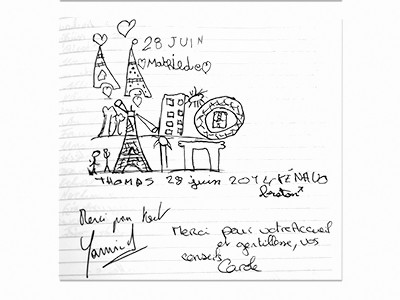 28 JUIN
Mathilde
THOMAS 28 juin 2014 KÉNAVO
breton
Merci pour tout
Yannick
Merci pour votre Accueil
et gentillesse, vos
conseils
Carole